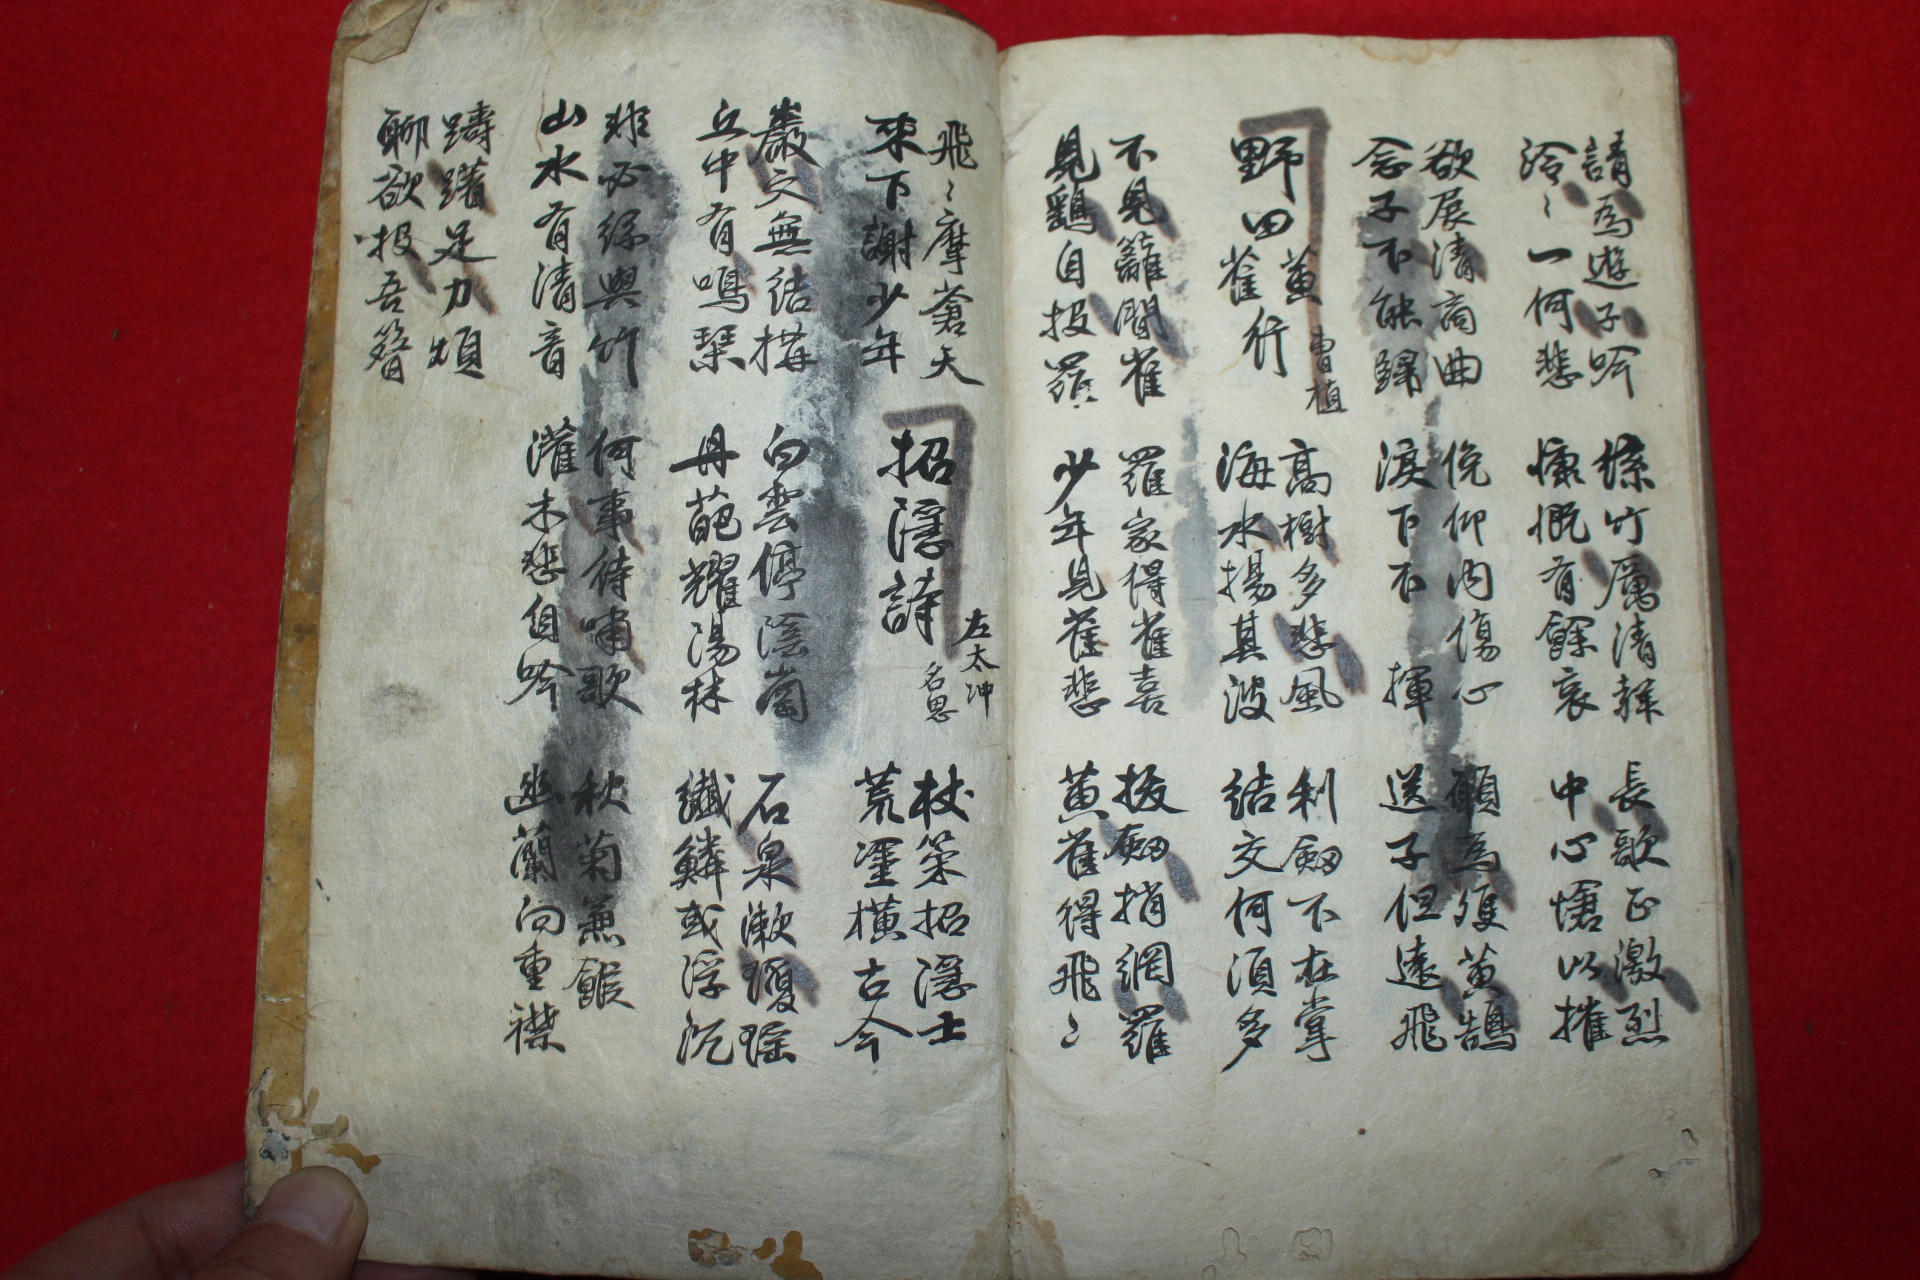 請為遊子吟
泠〻一何悲
絲竹厲清聲
慷慨有餘哀
長歌正激烈
中心愴以摧
欲展清商曲
念子不能歸
俛仰內傷心
淚下不揮
願為雙黃鵠
送子但遠飛
野田黃雀行
曹植
高樹多悲風
海水揚其波
利劒不在掌
結交何須多
不見籬間雀
見鷂自投羅
羅家得雀喜
少年見雀悲
拔劒捎網羅
黃雀得飛〻
飛〻摩蒼天
來下謝少年
招隱詩
左太冲
名思
杖策招隱士
荒塗橫古今
巖穴無結構
丘中有鳴琴
白雲停陰崗
丹葩耀湯林
石泉漱瓊瑶
纖鱗或浮沉
非必絲與竹
山水有清音
何事待嘯歌
灌木悲自吟
秋菊兼餱
幽蘭間重襟
躊躇足力煩
聊欲投吾簪